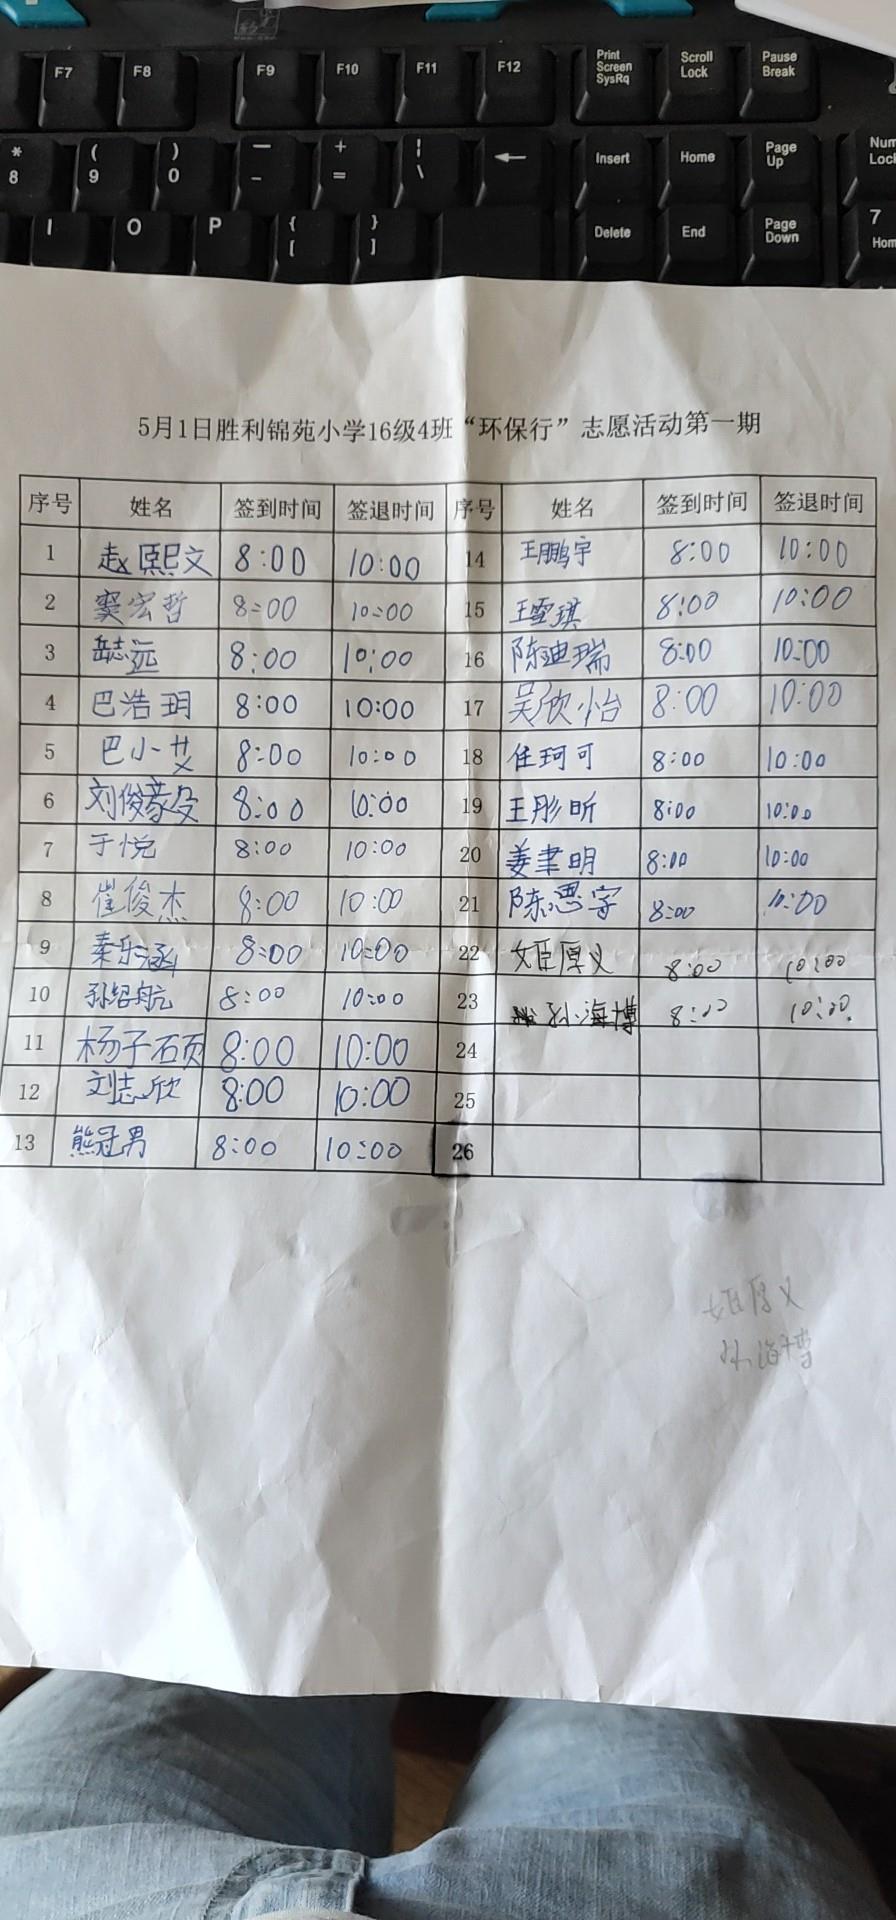 F7 F8 F9 F10 F11 F12 Print Screen SysRq Scroll Lock Pause Break
* 8 ( 9 ) 0 — - + = ¦ \ ← Insert Home Page Up Num Lock
I O P { [ } ] Delete End Page Down 7 Hom
5月1日胜利锦苑小学16级4班“环保行”志愿活动第一期
序号 姓名 签到时间 签退时间 序号 姓名 签到时间 签退时间
1 赵熙文 8:00 10:00 14 王鹏宇 8:00 10:00
2 窦宏哲 8:00 10:00 15 王雪琪 8:00 10:00
3 岳志远 8:00 10:00 16 陈迪瑞 8:00 10:00
4 巴浩玥 8:00 10:00 17 吴欣怡 8:00 10:00
5 巴小艾 8:00 10:00 18 任珂可 8:00 10:00
6 刘俊豪 8:00 10:00 19 王彤昕 8:00 10:00
7 于悦 8:00 10:00 20 姜聿明 8:00 10:00
8 崔俊杰 8:00 10:00 21 陈思宇 8:00 10:00
9 秦乐涵 8:00 10:00 22 姬厚义 8:00 10:00
10 孙绍航 8:00 10:00 23 孙海博 8:00 10:00
11 杨子硕 8:00 10:00 24
12 刘志欣 8:00 10:00 25
13 熊冠男 8:00 10:00 26
姬厚义
孙海博